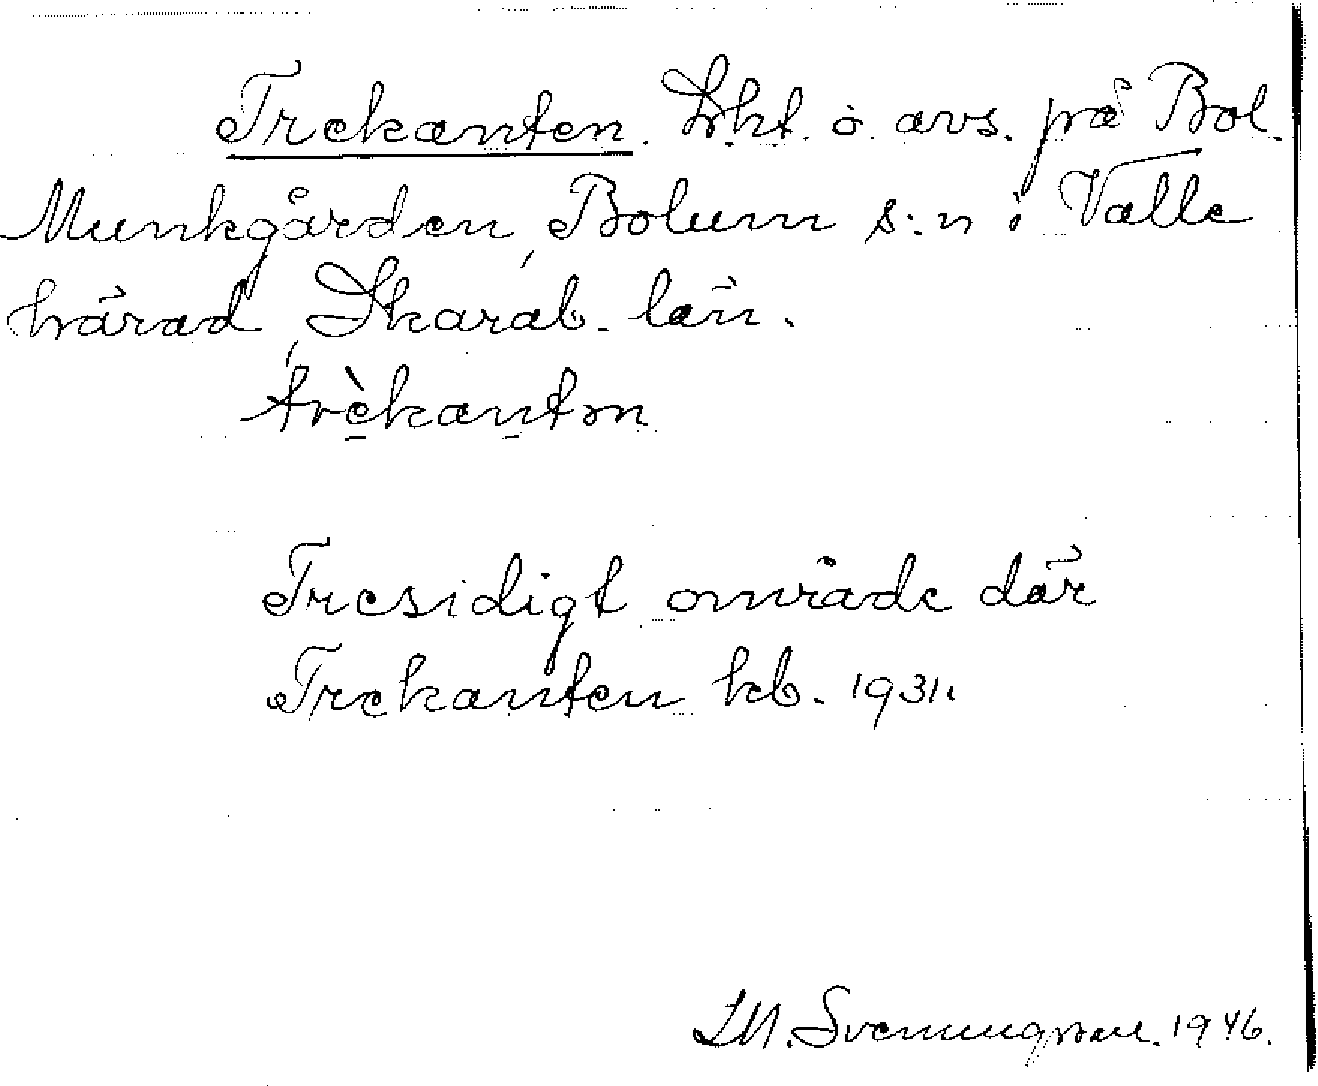 Trekanten. Lht. o. avs. på Bol.
Munkgården, Bolum s:n i Valle
härad, Skarab. län.
trèkantən
Tresidigt område där
Trekanten kb. 1931.
Sveningsson. 1946.